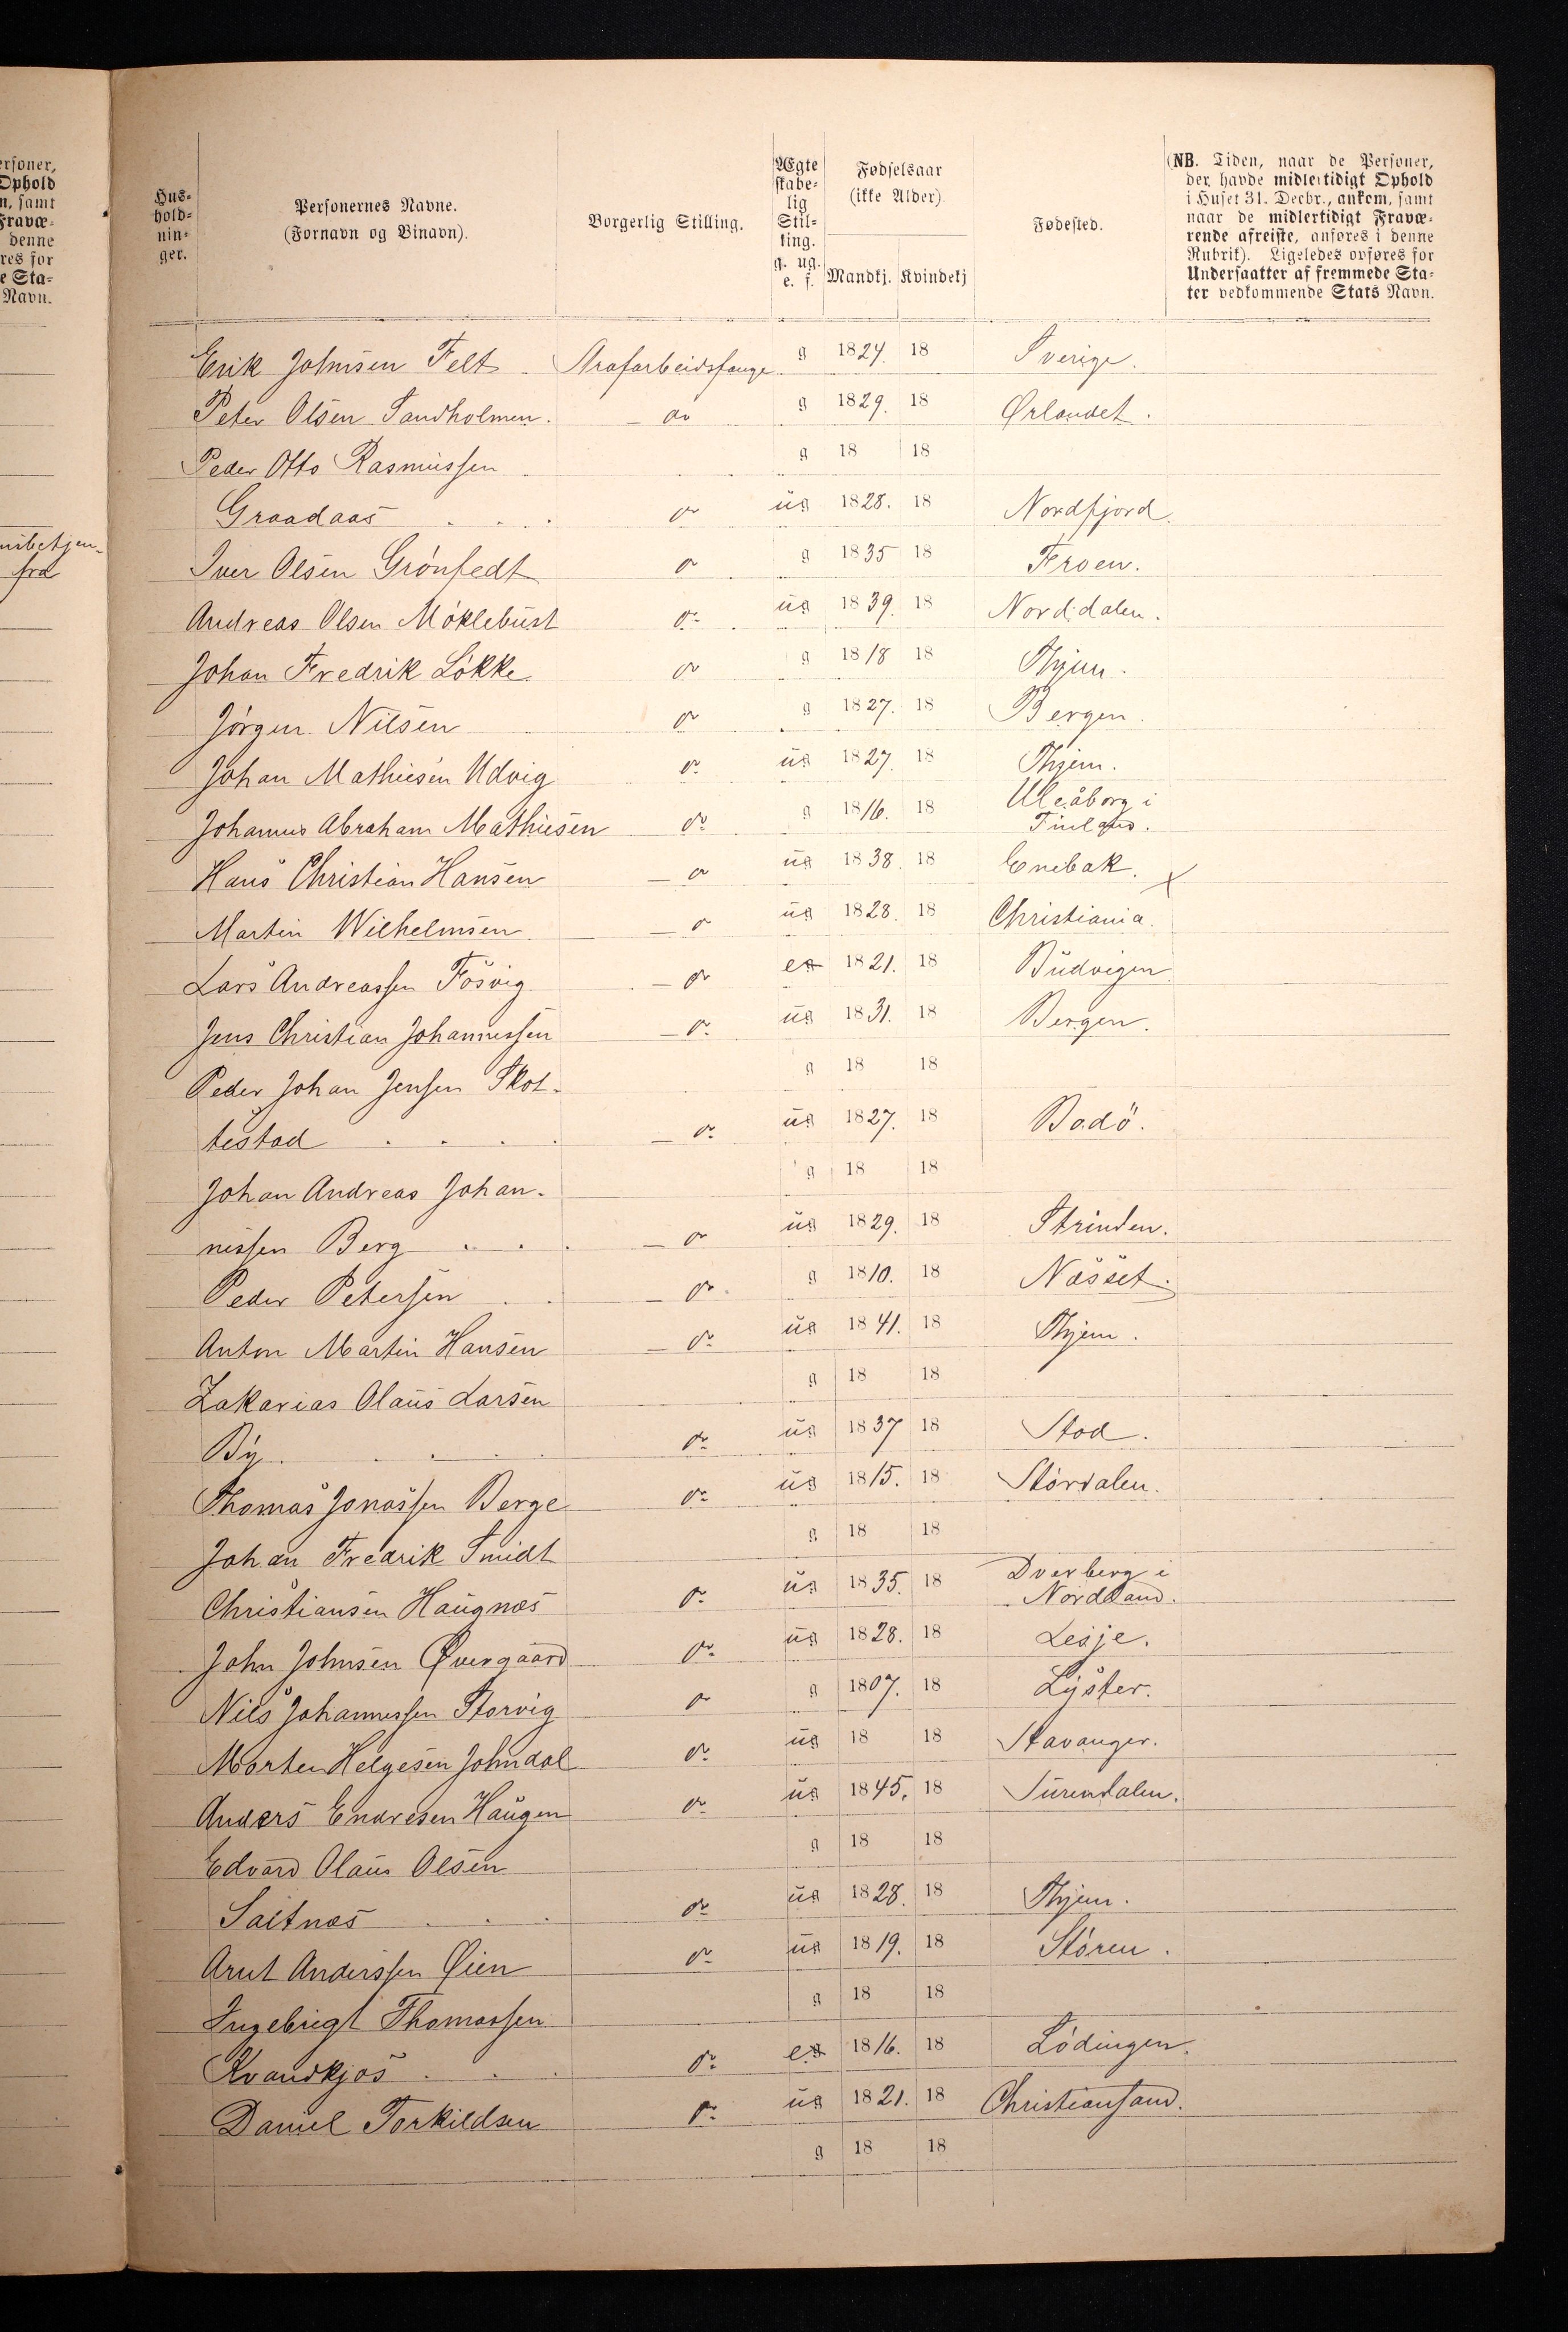 ersoner,
Ophold
n, samt
Fravæ-
denne
res for
e Sta-
Navn.
fra
Hus-
hold-
nin-
ger.
Personernes Navne.
(Fornavn og Binavn).
Borgerlig Stilling.
Ægte
skabe-
lig
Stil-
ling.
g. ug.
e. f.
Fødselsaar
(ikke Alder)
Mandkj. Kvindekj
Fødested.
(NB. Tiden, naar de Personer,
der havde midlertidigt Ophold
i Huset 31. Decbr., ankom, samt
naar de midlertidigt Fravæ-
rende afreiste, anføres i denne
Rubrik). Ligeledes opføres for
Undersaatter af fremmede Sta-
ter vedkommende Stats Navn.
Erik Johnsen Felt Strafarbeidsfange g 1824. 18 Sverige.
Peter Olsen Sandholmen. - do g 1829. 18 Ørlandet.
Peder Otto Rasmussen g 18 18
Graadaas . . . do ug 1828. 18 Nordfjord.
Iver Olsen Grönfedt do g 1835 18 Froen.
Andreas Olsen Möklebust do ug 1839. 18 Norddalen.
Johan Fredrik Lökke do g 1818 18 Thjem.
Jörgen Nilsen do g 1827. 18 Bergen.
Johan Mathiesen Udvig do ug 1827. 18 Thjem.
Johannes Abraham Mathiesen do g 1816. 18 Uleåborg i
Finland.
Hans Christian Hansen - do ug 1838. 18 Enebak. x
Martin Wilhelmsen - do ug 1828. 18 Christiania.
Lars Andreassen Fösvig - do e 1821. 18 Budvigen
Jens Christian Johannessen - do ug 1831. 18 Bergen.
Peder Johan Jensen Skot- g 18 18
testad . . . . - do ug 1827. 18 Bodö.
Johan Andreas Johan- g 18 18
nissen Berg . . . - do ug 1829. 18 Strinden.
Peder Petersen . . - do g 1810. 18 Næsset.
Anton Martin Hansen - do ug 1841. 18 Thjem.
Zakarias Olaus Larsen g 18 18
By. . . . do ug 1837 18 Stod.
Thomas Jonassen Berge do ug 1815. 18 Stördalen.
Johan Fredrik Smidt g 18 18
Christiansen Haugnæs do ug 1835. 18 Dverberg i
Nordland.
John Johnsen Øvergaard do ug 1828. 18 Lesje.
Nils Johannessen Storvig do g 1807. 18 Lyster.
Morten Helgesen Johndal do ug 18 18 Stavanger.
Anders Endresen Haugen do ug 1845. 18 Surendalen.
Edvard Olaus Olsen g 18 18
Saltnæs . . . do ug 1828. 18 Thjem.
Arnt Anderssen Øien do ug 1819. 18 Stören.
Ingebrigt Thomassen g 18 18
Kvandkjos . . . do e 1816. 18 Lödingen.
Daniel Torkildsen do ug 1821. 18 Christiansand.
g 18 18